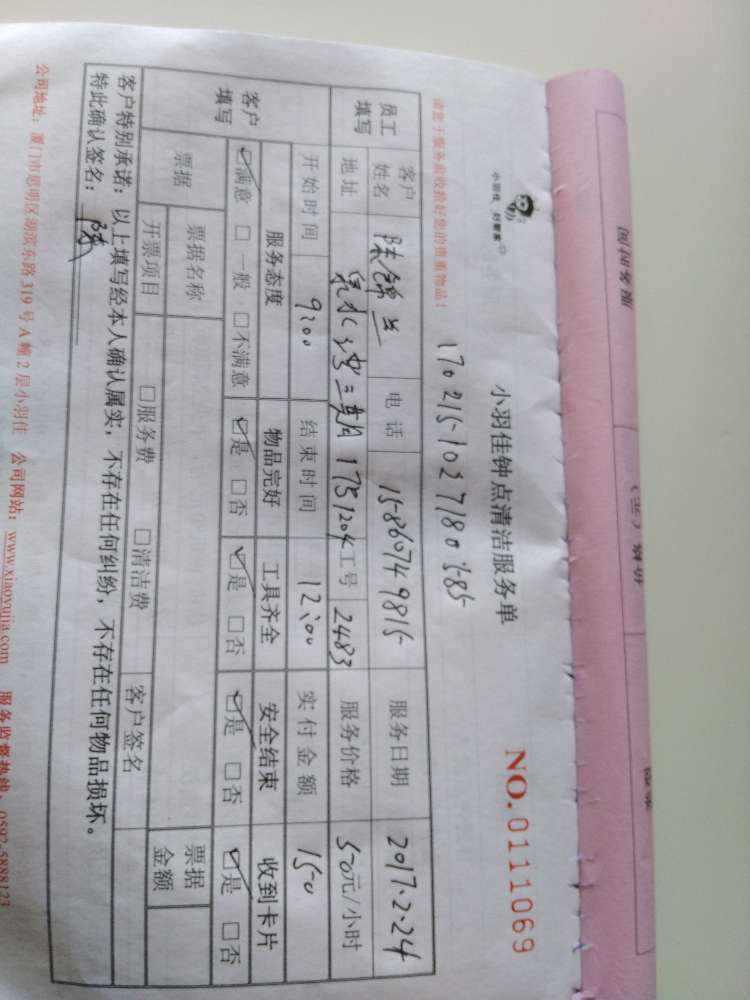 小羽佳 好管家
小羽佳钟点清洁服务单
NO.0111069
170215-10271809585
请您于服务前收拾好您的贵重物品！
员工填写 客户姓名 陈锦兰 电话 15860749815 服务日期 2017.2.24
地址 泉水湾三期 1751204 工号 2483 服务价格 50元/小时
开始时间 9:00 结束时间 12:00 实付金额 150
客户填写 服务态度 物品完好 工具齐全 安全结束 收到卡片
☑满意 □一般 □不满意 ☑是 □否 ☑是 □否 ☑是 □否 ☑是 □否
票据 票据名称 客户签名 票据金额
开票项目 □服务费 □清洁费
客户特别承诺：以上填写经本人确认属实，不存在任何纠纷，不存在任何物品损坏。
特此确认签名：陈
公司地址：厦门市思明区湖滨东路319号A幢2层小羽佳 公司网站：www.xiaoyujia.com 服务监督热线：0592-5888123